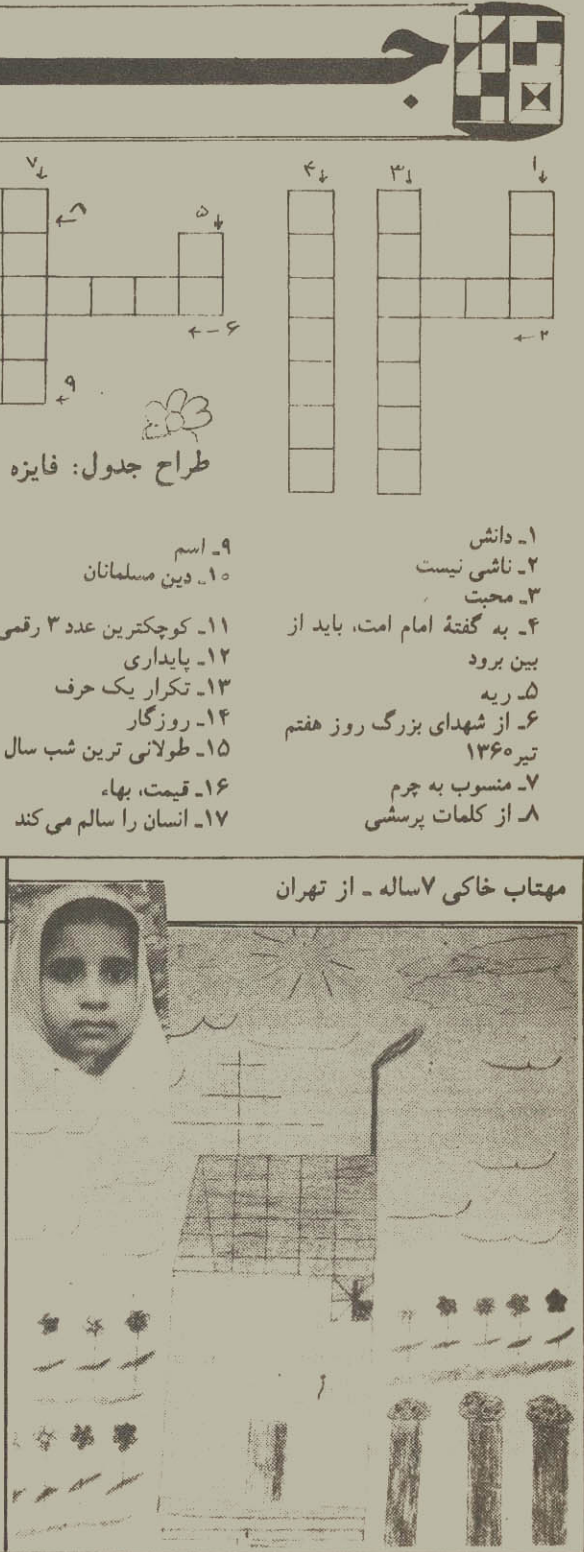 جـ
۱
۳
۴
۷
۸
۵
۶
۲
۹
طراح جدول: فایزه
۱ـ دانش
۲ـ ناشی نیست
۳ـ محبت
۴ـ به گفتهٔ امام امت، باید از
بین برود
۵ـ ریه
۶ـ از شهدای بزرگ روز هفتم
تیر ۱۳۶۰
۷ـ منسوب به چرم
۸ـ از کلمات پرسشی
۹ـ اسم
۱۰ـ دین مسلمانان
۱۱ـ کوچکترین عدد ۳ رقمی
۱۲ـ پایداری
۱۳ـ تکرار یک حرف
۱۴ـ روزگار
۱۵ـ طولانی ترین شب سال
۱۶ـ قیمت، بهاء
۱۷ـ انسان را سالم می‌کند
مهتاب خاکی ۷ساله ـ از تهران